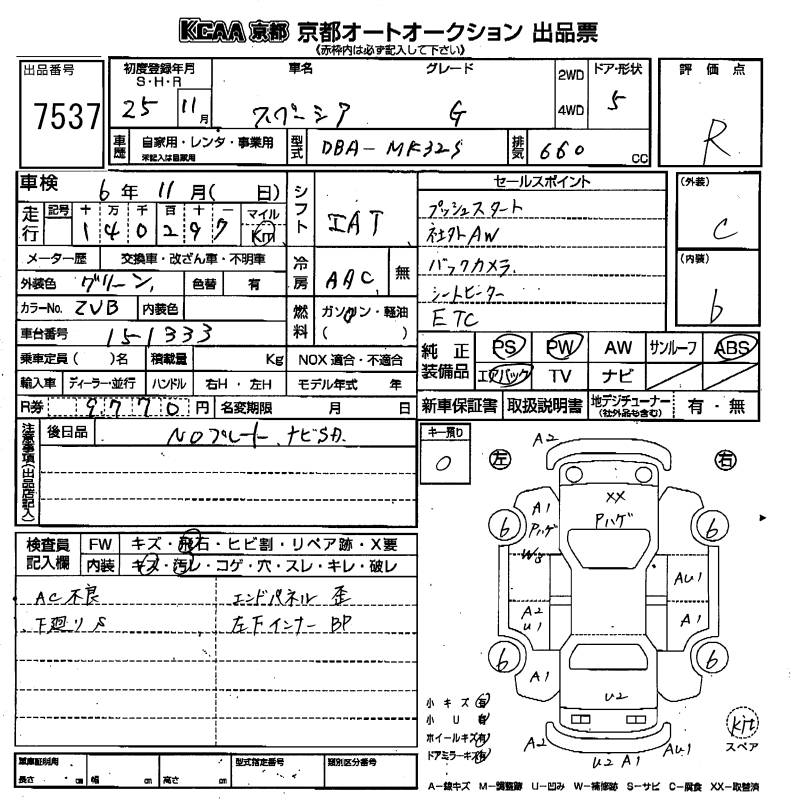 KCAA 京都 京都オートオークション 出品票
《赤枠内は必ず記入して下さい》
出品番号
7537
初度登録年月 車名 グレード
S・H・R
25 11月 スペーシア G
2WD
4WD
ドア・形状
5
評価点
R
車歴 自家用・レンタ・事業用
未記入は自家用
型式 DBA-MK32S
排気 660 CC
車検 6年 11月( 日)
走行 記号 十 万 千 百 十 一 マイル
1 4 0 2 9 7 Km
シフト IAT
メーター歴 交換車・改ざん車・不明車
外装色 グリーン 色替 有
冷房 AAC 無
カラーNo. ZVB 内装色
燃料 ガソリン・軽油
( )
車台番号 151333
乗車定員( )名 積載量 Kg NOX適合・不適合
輸入車 ディーラー・並行 ハンドル 右H・左H モデル年式 年
R券 9770円 名変期限 月 日
セールスポイント
プッシュスタート
社外AW
バックカメラ
シートヒーター
ETC
(外装)
C
(内装)
b
純正装備品 PS PW AW サンルーフ ABS
エアバック TV ナビ
新車保証書 取扱説明書 地デジチューナー 有・無
(社外品も含む)
注意事項(出品店記入)
後日品 NOプレート、ナビSD
キー預り
0
検査員記入欄
FW キズ・飛石・ヒビ割・リペア跡・X要
内装 キズ・汚レ・コゲ・穴・スレ・キレ・破レ
AC不良 エンドパネル 歪
下廻りS 左下インナー BP
左 右
A2
XX
Pハゲ
A1
Pハゲ
W8
6 6
AU1
A2
U1
A1
6 6
A1
U2
A2
U2 A1 AU1
小キズ 有
小U 有
ホイールキズ 有
ドアミラーキズ 有
kit
スペア
車庫証明用 型式指定番号 類別区分番号
長さ cm 幅 cm 高さ cm
A-線キズ M-調整跡 U-凹み W-補修跡 S-サビ C-腐食 XX-取替済